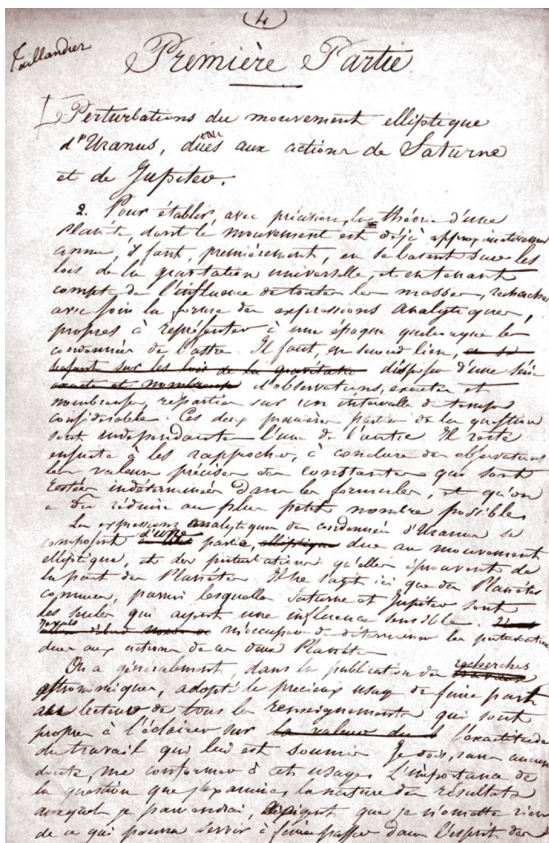 (4)
Taillandier
Première Partie
Perturbations du mouvement elliptique
d'Uranus, dues aux actions de Saturne
et de Jupiter.
2. Pour établir, avec précision, la théorie d'une
Planète, dont le mouvement est déjà approximativement
connu, il faut, premièrement, en se basant sur les
lois de la gravitation universelle, et en tenant
compte de l'influence de toutes les masses, rechercher
avec soin la forme des expressions analytiques,
propres à représenter à une époque quelconque les
coordonnées de l'astre. Il faut, en second lieu, en se
basant sur les lois de la gravitation disposer d'une série
exacte et nombreuse d'observations, exactes et
nombreuses, réparties sur un intervalle de temps
considérable. Ces deux premières parties de la question
sont indépendantes l'une de l'autre. Il reste
ensuite à les rapprocher, à conclure des observations
les valeurs précises des constantes qui sont
restées indéterminées dans les formules, et qu'on
a dû réduire au plus petit nombre possible.
Les expressions analytiques des coordonnées d'Uranus se
composent d'une partie elliptique due au mouvement
elliptique, et des perturbations qu'elles éprouvent de
la part des Planètes. Il ne s'agit ici que des Planètes
connues, parmi lesquelles Saturne et Jupiter sont
les seules qui aient une influence sensible.
m'occuper de déterminer les perturbations
dues aux actions de ces deux Planètes.
On a généralement, dans la publication des recherches
astronomiques, adopté le précieux usage de faire part
aux lecteurs de tous les renseignements qui sont
propres à l'éclairer sur la valeur de l'exactitude
du travail qui lui est soumis. Je dois, sans aucun
doute, me conformer à cet usage. L'importance de
la question que j'examine, la nature des résultats
auxquels je parviendrai, exigent que je n'omette rien
de ce qui pourra servir à faire passer dans l'esprit des